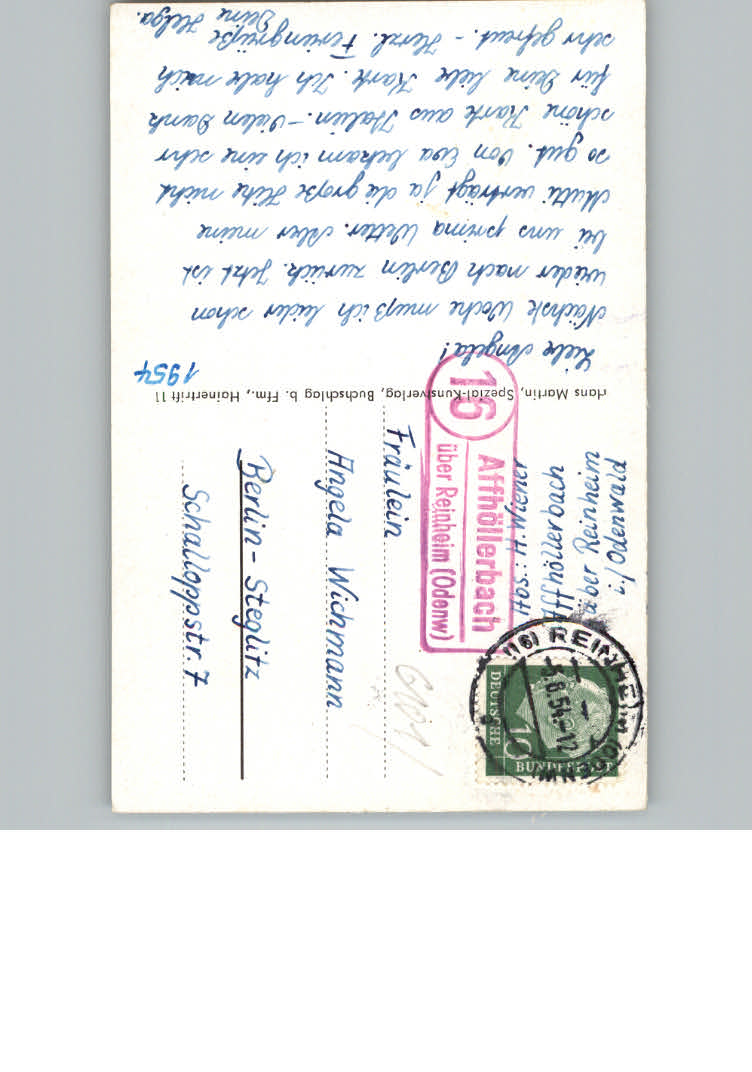 Liebe Angela!
Nächste Woche muß ich leider schon
wieder nach Berlin zurück. Jetzt ist
bei uns prima Wetter. Aber meine
Mutti verträgt ja die große Hitze nicht
so gut. Von Eva bekam ich eine sehr
schöne Karte aus Italien. - Vielen Dank
für Deine liebe Karte. Ich habe mich
sehr gefreut. - Herzl. Feriengrüße
Deine Helga.
1954
Hans Martin, Spezial-Kunstverlag, Buchschlag b. Ffm., Hainertrift 11
Abs.: H. Wiener
Affhöllerbach
über Reinheim
i./Odenwald
16
Affhöllerbach
über Reinheim (Odenw)
(16) REINHEIM (ODENW)
5.8.54.-12
DEUTSCHE
BUNDESPOST
10
Fräulein
Angela Wichmann
Berlin - Steglitz
Schalloppstr. 7